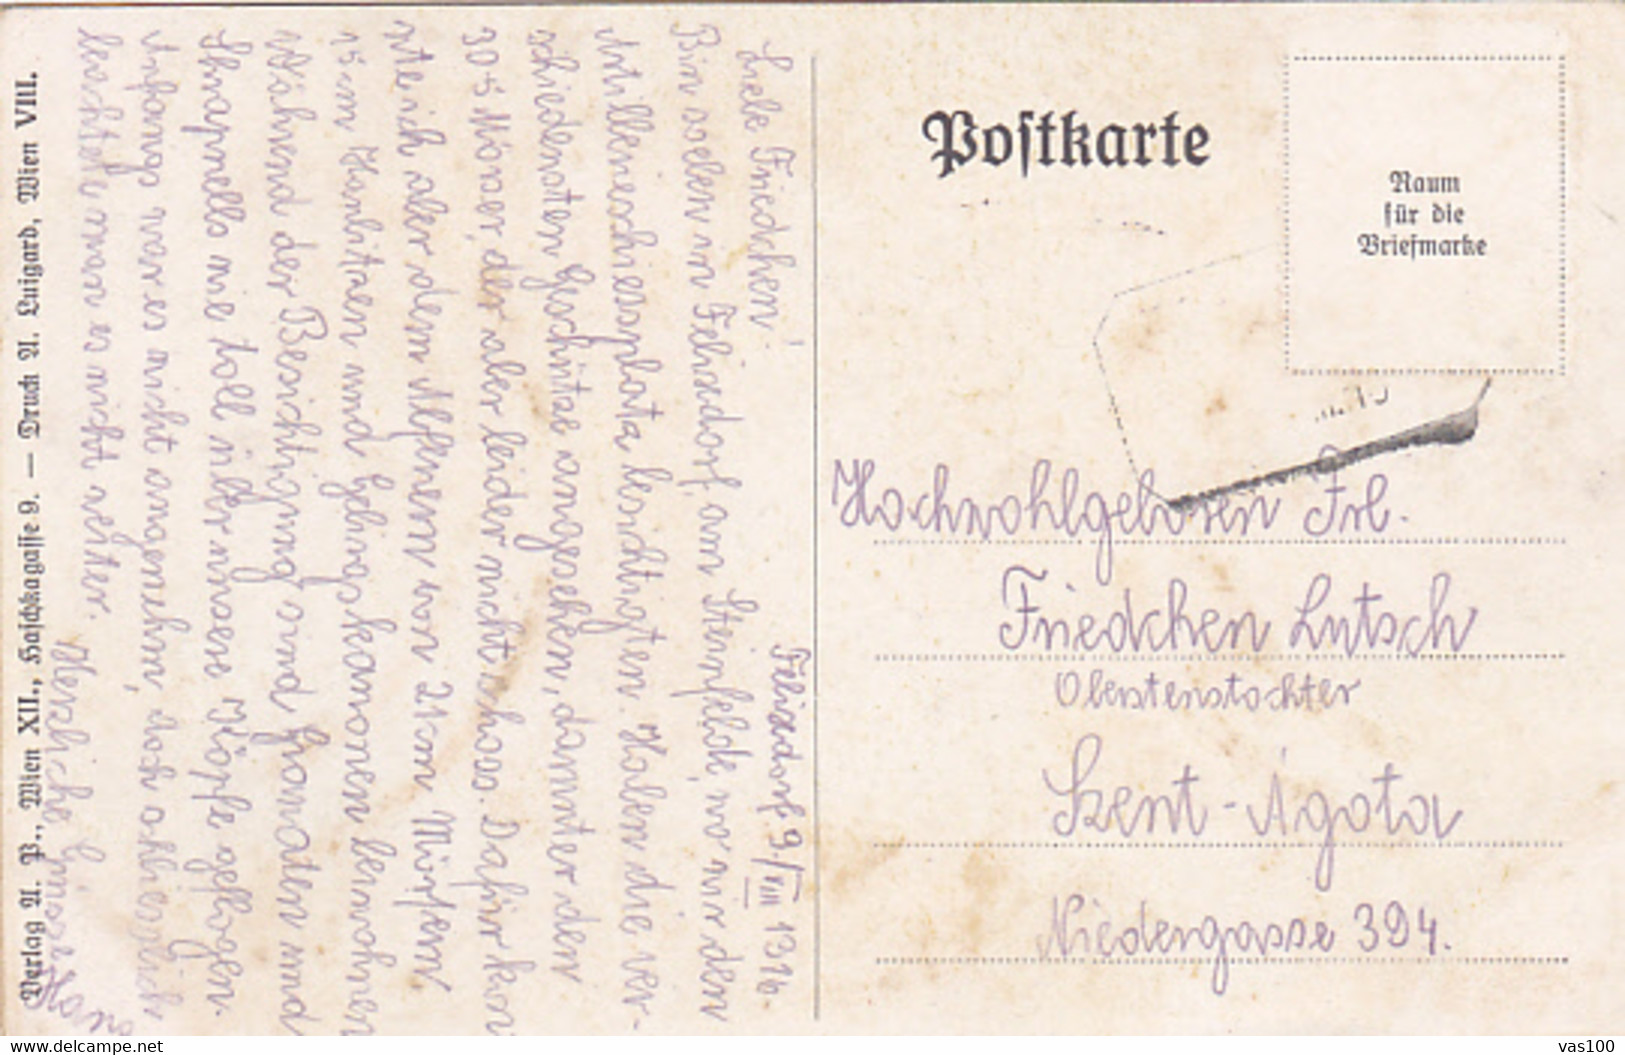 Postkarte
Raum
für die
Briefmarke
Hochwohlgeboren Frl.
Friedchen Lutsch
Oberstenstochter
Szent-Ágota
Niedergasse 394.
Felixdorf 9/VIII 1916.
Liebe Friedchen!
Bin soeben in Felixdorf, am Steinfelde, wo wir den
Artillerieschiessplatz besichtigten. Haben die ver-
schiedensten Geschütze angesehen, darunter den
30·5 Mörser, der aber leider nicht schoss. Dafür kon
nte ich aber dem Abfeuern von 21cm Mörsern
15cm Haubitzen und Gebirgskanonen beiwohnen
Während der Besichtigung sind Granaten und
Shrapnells wie toll über unsere Köpfe geflogen.
Anfangs war es nicht angenehm, doch schliesslich
beachtete man es nicht weiter.
Herzliche Grüsse Hans
Verlag A. P., Wien XII., Haschkagasse 9. — Druck A. Luigard, Wien VIII.
vas100
delcampe.net